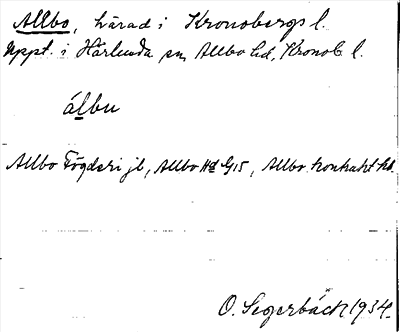 Allbo, härad i Kronobergs l.
Uppt. i Härlunda sn Allbo hd, Kronob. l.
álbu
Allbo Fögderi jb, Allbo Hd G15, Allbo kontrakt kb.
O. Segerbäck 1934.